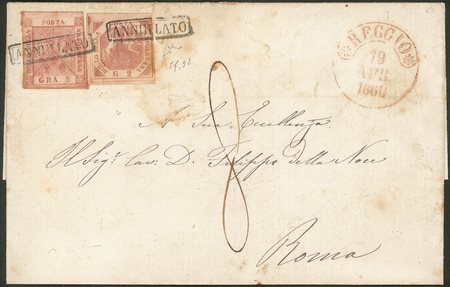 POSTA
ANNULLATO
ANNULLATO
GRA 5
G 2
REGGIO
19
APR.
1860
A Sua Eccellenza
Il Sig.r Cav. D. Filippo della Noce
8
Roma